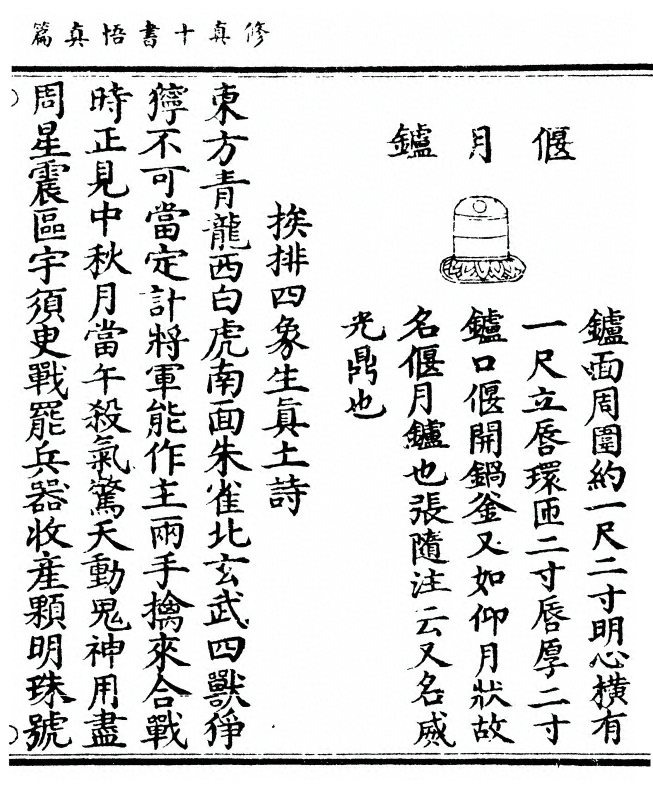 修真十書悟真篇
偃月鑪
鑪面周圍約一尺二寸明心橫有
一尺立唇環匝二寸唇厚二寸
鑪口偃開鍋釜又如仰月狀故
名偃月鑪也張隨注云又名威
光鼎也
挨排四象生眞土詩
東方青龍西白虎南面朱雀北玄武四獸猙
獰不可當定計將軍能作主兩手擒來合戰
時正見中秋月當午殺氣驚天動鬼神用盡
周星震區宇須臾戰罷兵器收產顆明珠號